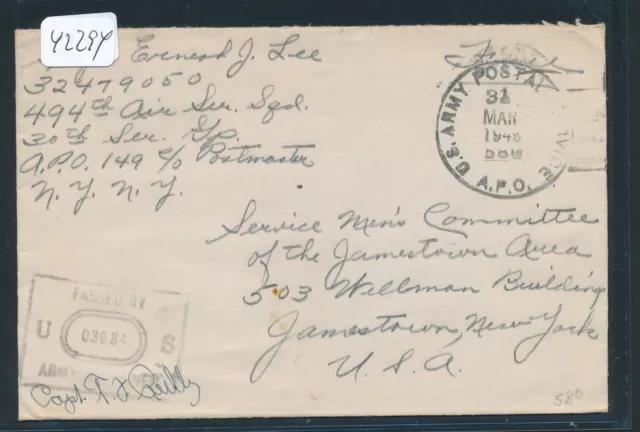 42294
Ernest J. Lee
Free
32479050
494th Air Ser. Sqd.
30th Ser. Gp.
A.P.O. 149 c/o Postmaster
N. Y. N. Y.
U.S. ARMY POSTAL
31
MAR
1943
A.P.O.
Service Men's Committee
of the Jamestown Area
503 Wellman Building
Jamestown, New York
U. S. A.
PASSED BY
U S
ARMY
Capt. T. J. Reilly
580